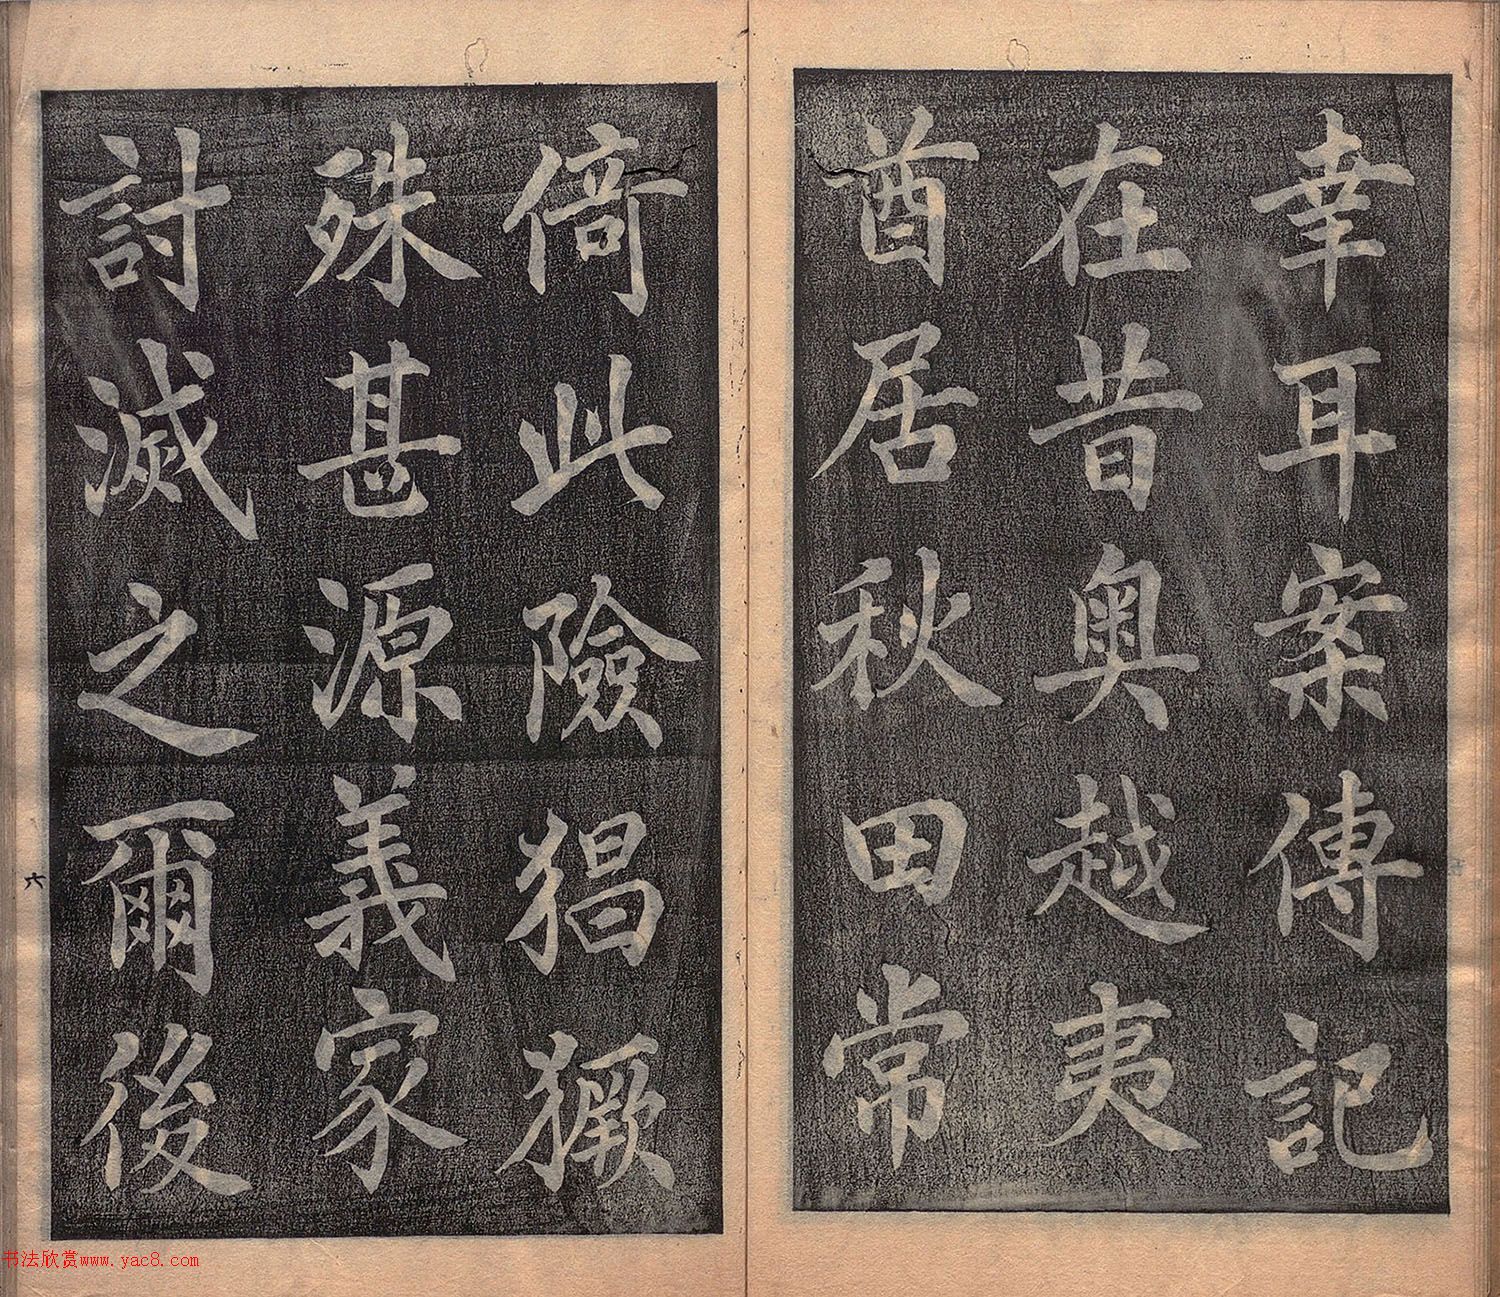 幸耳案傳記
在昔奥越夷
酋居秋田常
倚此險猖獗
殊甚源義家
討滅之爾後
六
书法欣赏www.yac8.com